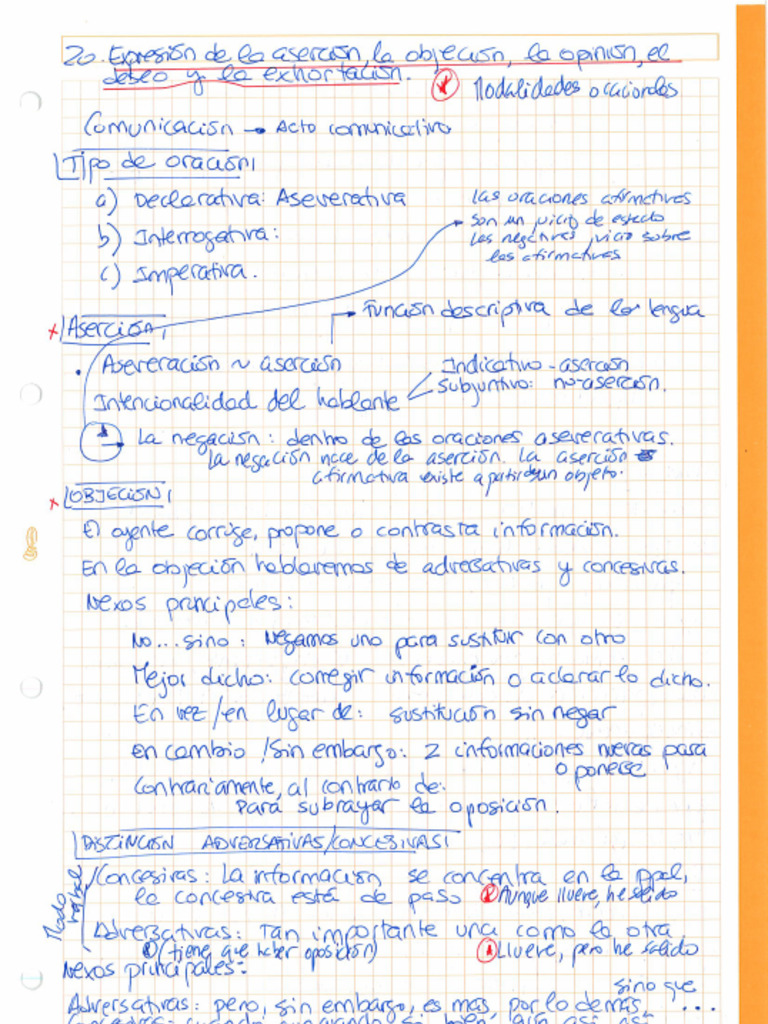 20. Expresión de la aserción, la objeción, la opinión, el
deseo y la exhortación.
Modalidades oracionales
Comunicación → Acto comunicativo
Tipo de oración
a) Declarativa: Aseverativa
b) Interrogativa:
c) Imperativa.
las oraciones afirmativas
son un juicio de
las negativas juicio sobre
las afirmativas
Aserción
Función descriptiva de la lengua
• Aseveración ~ aserción
Intencionalidad del hablante
Indicativo - aserción
Subjuntivo: no-aserción.
→ La negación: dentro de las oraciones aseverativas.
La negación nace de la aserción. La aserción
afirmativa existe a partir de un objeto.
OBJECIÓN
El oyente corrige, propone o contrasta información.
En la objeción hablaremos de adversativas y concesivas.
Nexos principales:
No...sino: Negamos uno para sustituir con otro
Mejor dicho: corregir información o aclarar lo dicho.
En vez/en lugar de: sustitución sin negar
En cambio/Sin embargo: 2 informaciones nuevas para
oponerse
Contrariamente, al contrario de:
Para subrayar la oposición.
DISTINCIÓN ADVERSATIVAS/CONCESIVAS
Concesivas: La información se concentra en la ppal,
la concesiva está de paso Aunque llueve, he salido
Modo
Adversativas: Tan importante una como la otra
(tiene que haber oposición) Llueve, pero he salido
Nexos principales:
sino que
Adversativas: pero, sin embargo, es más, por lo demás ...